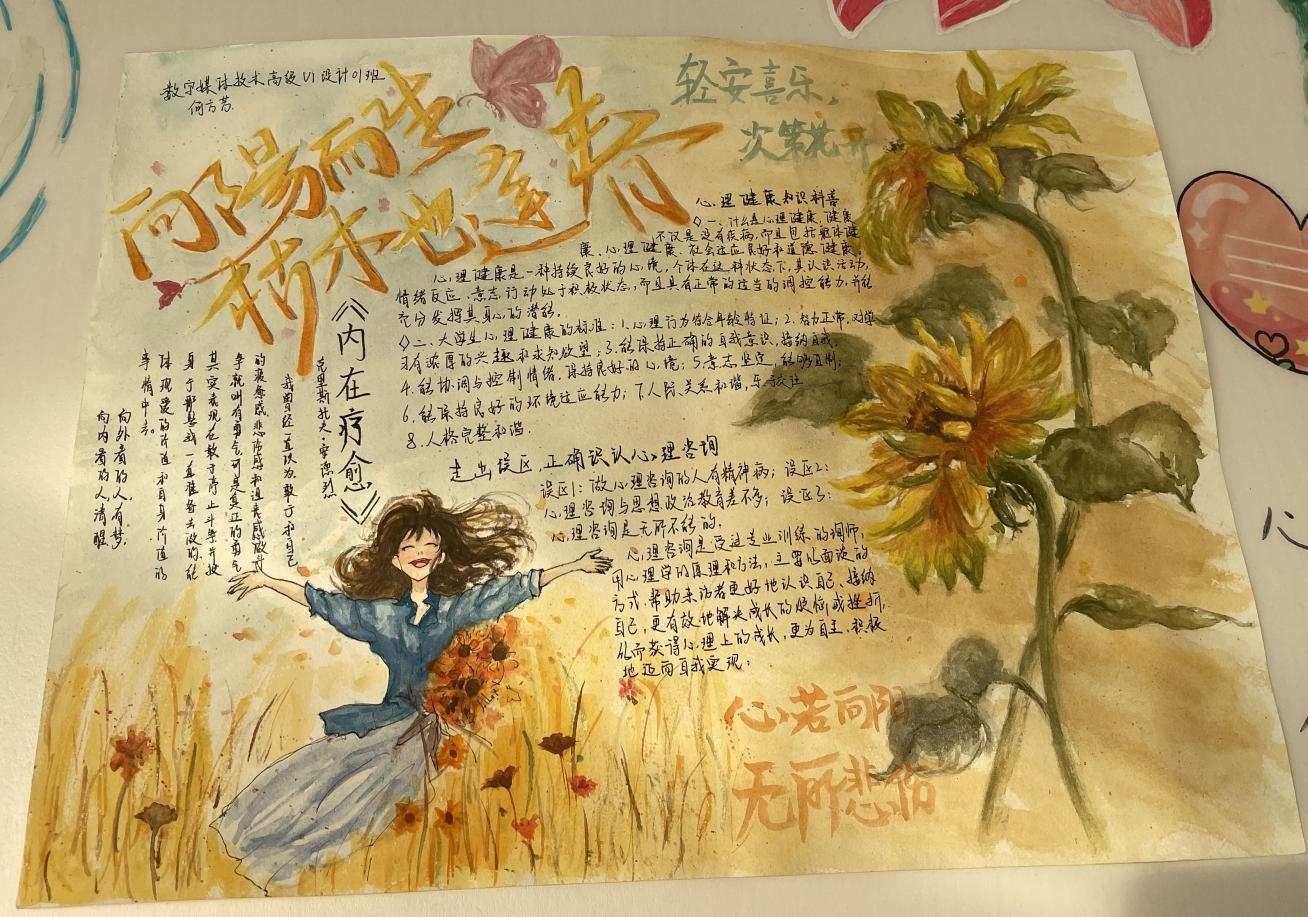 数字媒体技术高级UI设计01班
何方艺
向陽而生
枯木也逢春
轻安喜乐，
次第花开
心理健康知识科普
◇一、什么是心理健康，健康
不仅是没有疾病，而且包括躯体健
康、心理健康、社会适应良好和道德健康。
心理健康是一种持续良好的心境，个体在这种状态下，其认识活动，
情绪反应、意志行动处于积极状态，而且具有正常的适当的调控能力，并能
充分发挥其身心的潜能。
◇二、大学生心理健康的标准：1.心理行为符合年龄特征；2.智力正常，对学
习有浓厚的兴趣和求知欲望；3.能保持正确的自我意识，接纳自我，
4.能协调与控制情绪，保持良好的心境；5.意志坚定，能够自制；
6.能保持良好的环境适应能力；7.人际关系和谐，乐于交往
8.人格完整和谐。
走出误区，正确识认心理咨询
误区1：做心理咨询的人有精神病；误区2：
心理咨询与思想政治教育差不多；误区3：
心理咨询是无所不能的。
心理咨询是受过专业训练的询师，
用心理学的原理和方法，主要以面谈的
方式，帮助来访者更好地认识自己、接纳
自己，更有效地解决成长的烦恼或挫折，
从而获得心理上的成长，更为自主、积极
地迈向自我实现；
《内在疗愈》
克里斯托夫·安德烈
我曾经一直认为，敢于和自己
的疲惫感悲伤感和追丧感做斗
争就叫有勇气，可是真正的勇气
其实表现在敢于停止斗争并投
身于那些我一直准备去做的，能
体现爱的价值和自身价值的
事情中去。
向外看的人，有梦，
向内看的人，清醒
心若向阳
无所悲伤